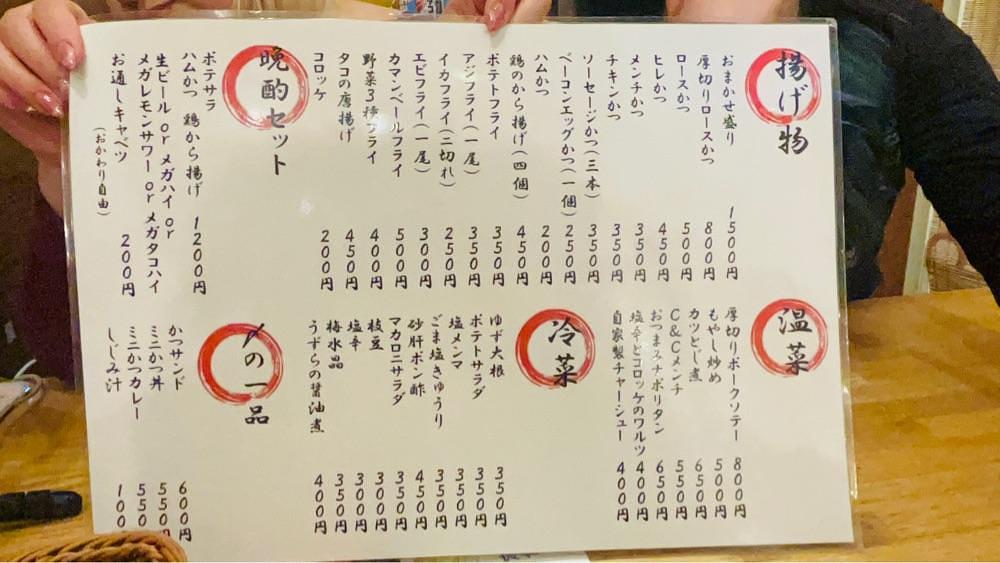 揚げ物
おまかせ盛り 1500円
厚切りロースかつ 800円
ロースかつ 500円
ヒレかつ 450円
メンチかつ 350円
チキンかつ 350円
ソーセージかつ(三本) 350円
ベーコンエッグかつ(一個) 250円
ハムかつ 200円
鶏のから揚げ(四個) 450円
ポテトフライ 350円
アジフライ(一尾) 350円
イカフライ(二切れ) 250円
エビフライ(一尾) 300円
カマンベールフライ 500円
野菜3種フライ 400円
タコの唐揚げ 450円
コロッケ 200円
晩酌セット
ポテサラ
ハムかつ 鶏から揚げ 1200円
生ビール or メガハイ or
メガレモンサワー or メガタコハイ
お通しキャベツ 200円
(おかわり自由)
温菜
厚切りポークソテー 800円
もやし炒め 500円
カツとじ煮 650円
C&Cメンチ 550円
おつまみナポリタン 650円
塩辛とコロッケのワルツ 400円
自家製チャーシュー 400円
冷菜
ゆず大根 350円
ポテトサラダ 350円
塩メンマ 350円
ごま塩きゅうり 350円
砂肝ポン酢 450円
マカロニサラダ 350円
枝豆 300円
塩辛 300円
梅水晶 350円
うずらの醤油煮 400円
〆の一品
かつサンド 600円
ミニかつ丼 550円
ミニかつカレー 550
しじみ汁 100